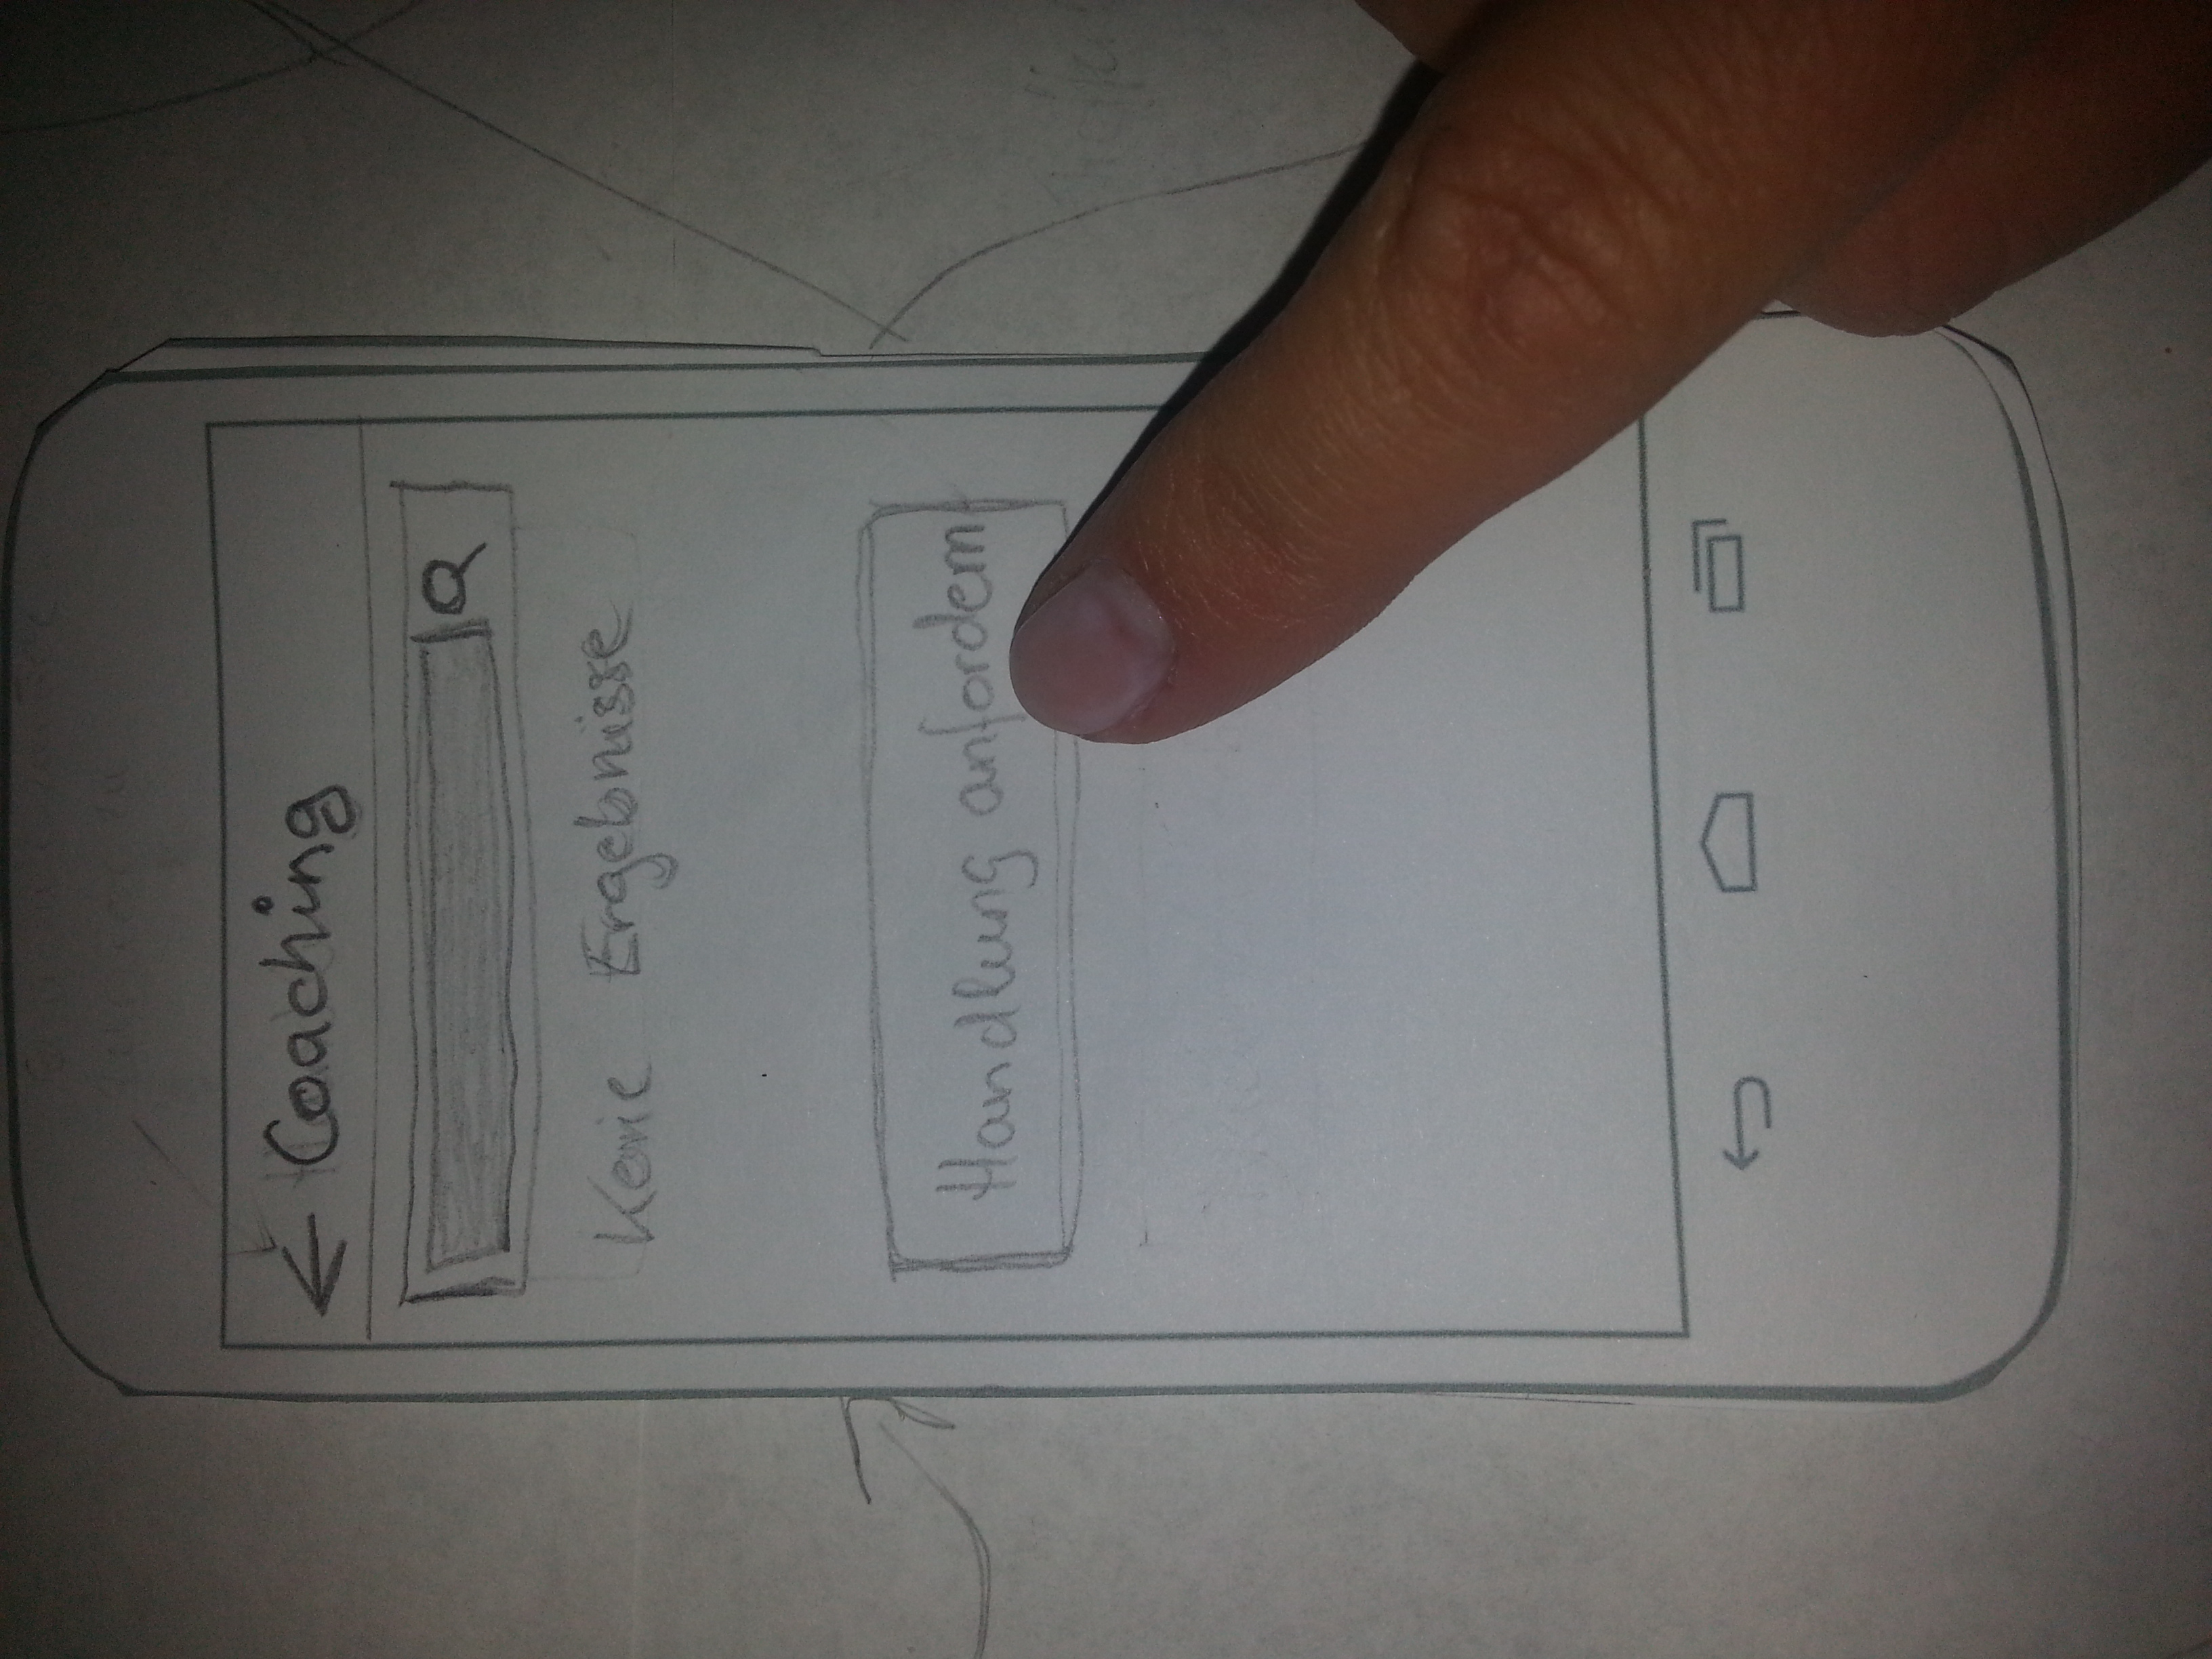 ← Coaching
Keine Ergebnisse
Handlung anfordern